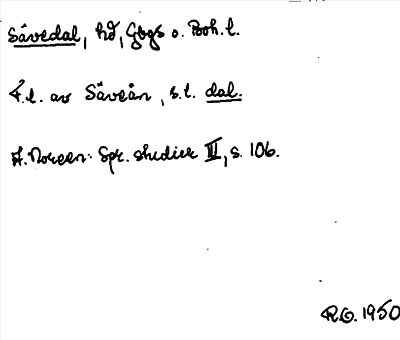 Sävedal, hd, Gbgs o. Boh. l.
F.l. av Säveån, s.l. dal.
A. Noreen: Spr. studier III, s. 106.
R.G. 1950